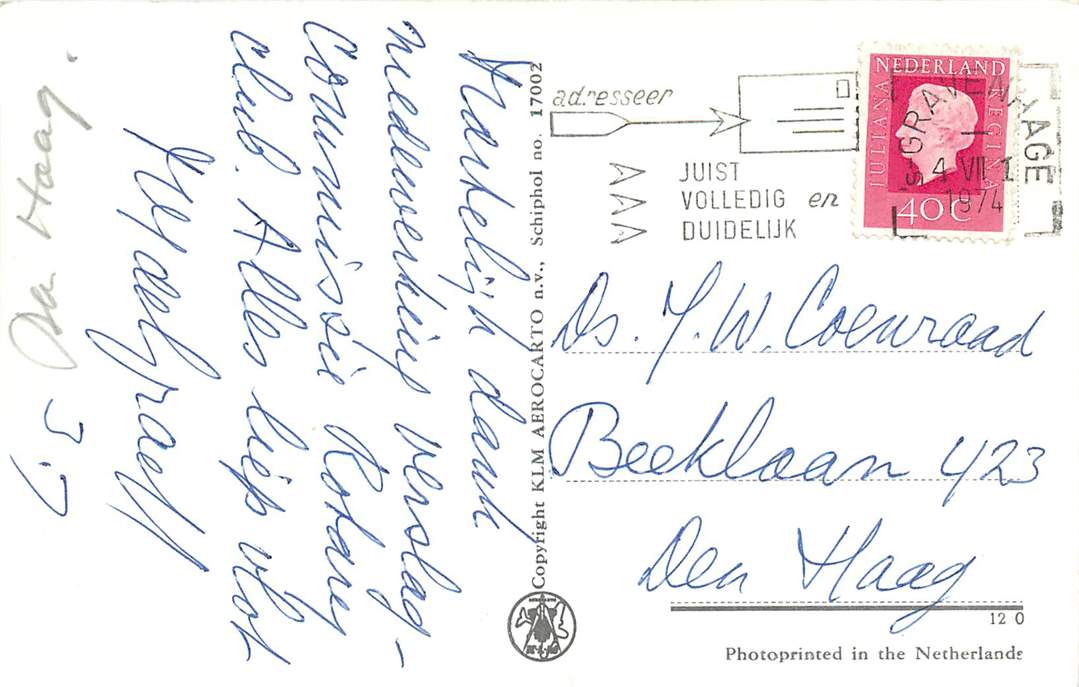 Den Haag.
3.7
Hartelijk dank
medewerking verslag-
commissie Rotary
club. Alles liep vlot
Copyright KLM AEROCARTO n.v., Schiphol no. 17002
adresseer
JUIST
VOLLEDIG en
DUIDELIJK
NEDERLAND
JULIANA
REGINA
40c
's-GRAVENHAGE
4 VII 1
1974
Ds. J. W. Coenraad
Beeklaan 423
Den Haag
12 0
Photoprinted in the Netherlands